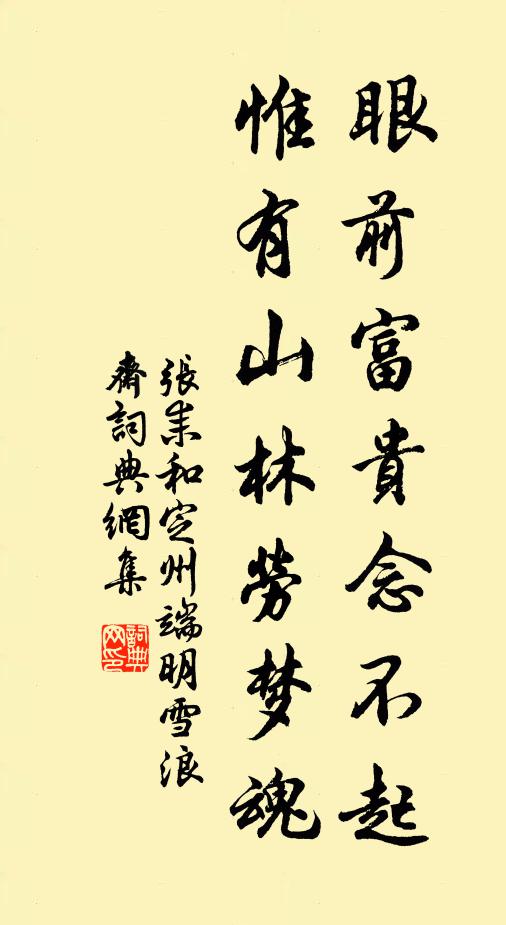 眼前富貴念不起
惟有山林勞梦魂
張耒和定州端明雪浪
齋詞典網集
詞典
网印